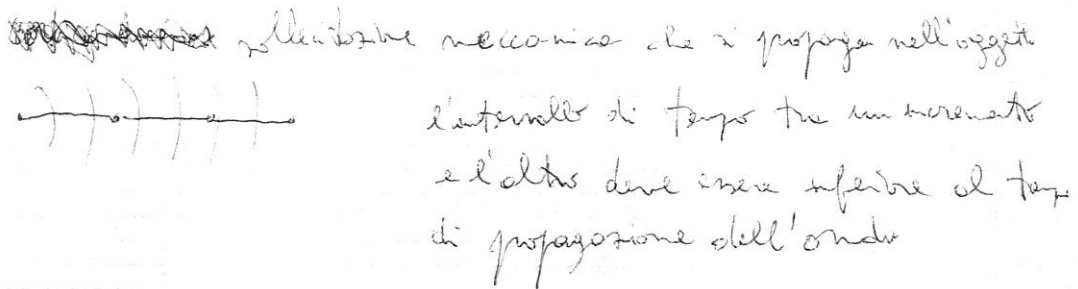 sollecitazione meccanica che si propaga nell'oggetto
l'intervallo di tempo tra un incremento
e l'altro deve essere inferiore al tempo
di propagazione dell'onda